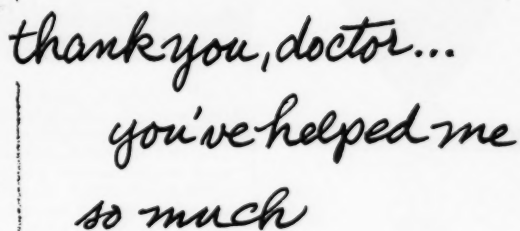 thank you, doctor...
you've helped me
so much